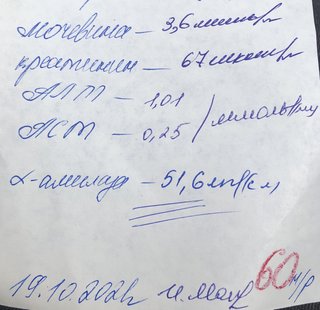 мочевина – 3,6 ммоль/л
креатинин – 67 мкмоль/л
АЛТ – 1,01
АСТ – 0,25 ммоль/
α-амилаза – 51,6
19.10.202 60 н/р